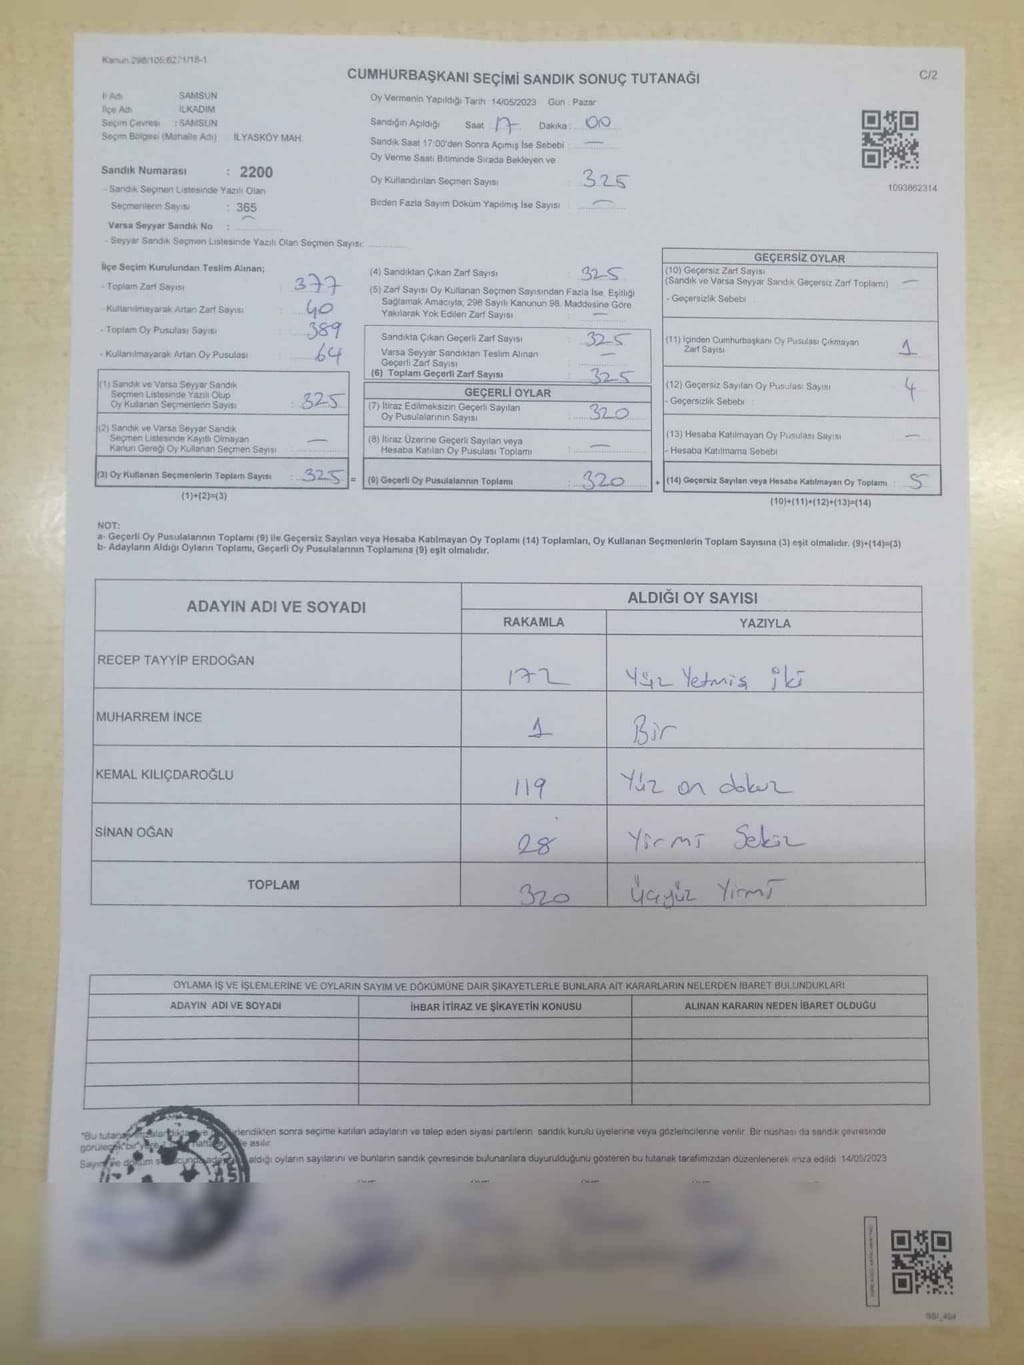 Kanun.298/105;6271/18-1
CUMHURBAŞKANI SEÇİMİ SANDIK SONUÇ TUTANAĞI
C/2
İl Adı SAMSUN
İlçe Adı İLKADIM
Seçim Çevresi : SAMSUN
Seçim Bölgesi (Mahalle Adı) İLYASKÖY MAH.
Sandık Numarası : 2200
- Sandık Seçmen Listesinde Yazılı Olan
Seçmenlerin Sayısı : 365
Varsa Seyyar Sandık No : —
- Seyyar Sandık Seçmen Listesinde Yazılı Olan Seçmen Sayısı:
Oy Vermenin Yapıldığı Tarih :14/05/2023 Gün : Pazar
Sandığın Açıldığı Saat 17 Dakika : 00
Sandık Saat 17:00'den Sonra Açılmış İse Sebebi : —
Oy Verme Saati Bitiminde Sırada Bekleyen ve
Oy Kullandırılan Seçmen Sayısı : 325
Birden Fazla Sayım Döküm Yapılmış İse Sayısı : —
1093862314
İlçe Seçim Kurulundan Teslim Alınan;
- Toplam Zarf Sayısı : 377
- Kullanılmayarak Artan Zarf Sayısı : 40
- Toplam Oy Pusulası Sayısı : 389
- Kullanılmayarak Artan Oy Pusulası : 64
(1) Sandık ve Varsa Seyyar Sandık
Seçmen Listesinde Yazılı Olup
Oy Kullanan Seçmenlerin Sayısı : 325
(2) Sandık ve Varsa Seyyar Sandık
Seçmen Listesinde Kayıtlı Olmayan
Kanun Gereği Oy Kullanan Seçmen Sayısı : —
(3) Oy Kullanan Seçmenlerin Toplam Sayısı : 325 =
(1)+(2)=(3)
(4) Sandıktan Çıkan Zarf Sayısı : 325
(5) Zarf Sayısı Oy Kullanan Seçmen Sayısından Fazla İse, Eşitliği
Sağlamak Amacıyla, 298 Sayılı Kanunun 98. Maddesine Göre
Yakılarak Yok Edilen Zarf Sayısı : —
Sandıkta Çıkan Geçerli Zarf Sayısı : 325
Varsa Seyyar Sandıktan Teslim Alınan
Geçerli Zarf Sayısı : —
(6) Toplam Geçerli Zarf Sayısı : 325
GEÇERLİ OYLAR
(7) İtiraz Edilmeksizin Geçerli Sayılan
Oy Pusulalarının Sayısı : 320
(8) İtiraz Üzerine Geçerli Sayılan veya
Hesaba Katılan Oy Pusulası Toplamı : —
(9) Geçerli Oy Pusulalarının Toplamı : 320 +
GEÇERSİZ OYLAR
(10) Geçersiz Zarf Sayısı
(Sandık ve Varsa Seyyar Sandık Geçersiz Zarf Toplamı) : —
- Geçersizlik Sebebi :
(11) İçinden Cumhurbaşkanı Oy Pusulası Çıkmayan
Zarf Sayısı : 1
(12) Geçersiz Sayılan Oy Pusulası Sayısı : 4
- Geçersizlik Sebebi :
(13) Hesaba Katılmayan Oy Pusulası Sayısı : —
- Hesaba Katılmama Sebebi
(14) Geçersiz Sayılan veya Hesaba Katılmayan Oy Toplamı : 5
(10)+(11)+(12)+(13)=(14)
NOT:
a- Geçerli Oy Pusulalarının Toplamı (9) ile Geçersiz Sayılan veya Hesaba Katılmayan Oy Toplamı (14) Toplamları, Oy Kullanan Seçmenlerin Toplam Sayısına (3) eşit olmalıdır. (9)+(14)=(3)
b- Adayların Aldığı Oyların Toplamı, Geçerli Oy Pusulalarının Toplamına (9) eşit olmalıdır.
ADAYIN ADI VE SOYADI
ALDIĞI OY SAYISI
RAKAMLA YAZIYLA
RECEP TAYYİP ERDOĞAN 172 Yüz Yetmiş iki
MUHARREM İNCE 1 Bir
KEMAL KILIÇDAROĞLU 119 Yüz on dokuz
SİNAN OĞAN 28 Yirmi Sekiz
TOPLAM 320 Üçyüz Yirmi
OYLAMA İŞ VE İŞLEMLERİNE VE OYLARIN SAYIM VE DÖKÜMÜNE DAİR ŞİKAYETLERLE BUNLARA AİT KARARLARIN NELERDEN İBARET BULUNDUKLARI
ADAYIN ADI VE SOYADI İHBAR İTİRAZ VE ŞİKAYETİN KONUSU ALINAN KARARIN NEDEN İBARET OLDUĞU
"Bu tutanak sonra seçime katılan adayların ve talep eden siyasi partilerin sandık kurulu üyelerine veya gözlemcilerine verilir. Bir nüshası da sandık çevresinde
asılır.
aldığı oyların sayılarını ve bunların sandık çevresinde bulunanlara duyurulduğunu gösteren bu tutanak tarafımızdan düzenlenerek imza edildi. 14/05/2023